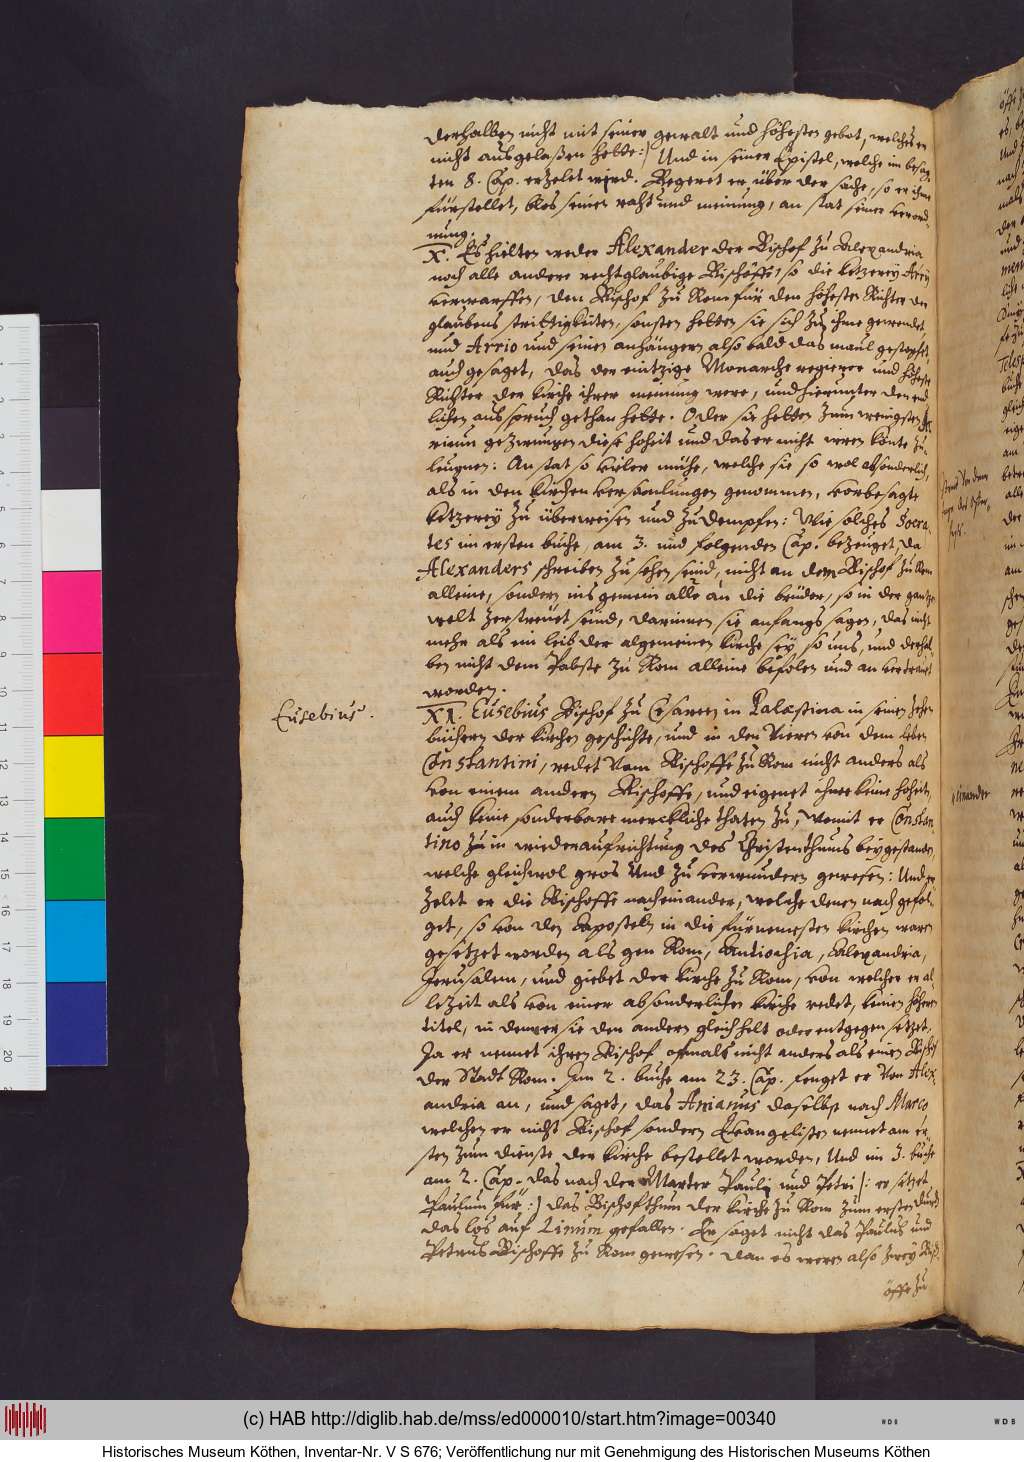 derhalben nicht mit seiner gewalt und höhesten gebot, welches er
nicht ausgelaßen hette:) Und in seiner Epistel, welche im besag-
ten 8. Cap. erzelet wird. Begeret er über der sache, so er ihme
fürstellet, blos seinen raht und meinung, an stat seiner verord-
nung.
X. Es hielten weder Alexander der Bischof zu Alexandria
noch alle andere rechtglaubige Bischoffe, so die ketzerey Arij
verwarffen, den Bischof zu Rom für den höhesten Richter der
glaubens strittigkeiten, sonsten hetten sie sich zu ihme gewendet,
und Arrio und seinen anhängern also bald das maul gestopfet,
auch gesaget, das der eintzige Monarche regierer und höheste
Richter der kirche ihrer meinung were, und hierunter den end
lichen ausspruch gethan hette. Oder sie hetten zum wenigsten Ar
rium gezwungen diese hoheit und das er nicht irren könte zu
leugnen: An stat so vieler mühe, welche sie so wol absonderlich,
als in den kirchen versamlungen genommen, vorbesagte
ketzerey zu überweisen und zu dempfen: Wie solches Socra-
tes im ersten buche, am 3. und folgenden Cap. bezeuget, da
Alexanders schreiben zu sehen seind, nicht an dem Bischof zu Rom
alleine, sondern ins gemein alle an die brüder, so in der gantzen
welt zerstreüet seind, darinnen sie anfangs sagen, das nicht
mehr als ein leib der algemeinen kirche sey, so uns, und derhal
ben nicht dem Pabste zu Rom alleine befolen und an vertrauet
worden.
Eusebius.
XI. Eusebius Bischof zu Cesareen in Palæstina in seinen zehen
büchern der kirchen geschichte, und in den Vieren von dem leben
Constantini, redet Vom Bischoffe zu Rom nicht anders als
von einem andern Bischoffe, und eigenet ihme keine hoheit,
auch keine sonderbare merckliche thaten zu, womit er Constan
tino zu in wiederaufrichtung des Christenthums beygestanden,
welche gleichwol gros Und zu verwundern gewesen: Und er
zelet er die Bischoffe nacheinander, welche denen nach gefol-
get, so von den Aposteln in die fürnemesten kirchen waren
gesetzet worden als gen Rom, Antiochia, Alexandria,
Jerusalem, und giebet der kirche zu Rom, von welcher er al
lezeit als von einer absonderlichen kirche redet, keinen höhern
titel, in deme er sie den andern gleich helt oder entgegen setzet.
Ja er nennet ihren Bischof oftmals nicht anders als einen Bischof
der Stadt Rom. Im 2. buche am 23. Cap. fenget er Von Alex
andria an, und saget, das Anianus daselbst nach Marco
welchen er nicht Bischof sondern Evangelisten nennet am er
sten zum dienste der kirche bestellet worden, Und im 3. buche
am 2. Cap. das nach der Marter Pauli und Petri (: er setzet
Paulum für :) das Bischofthum der kirche zu Rom zum ersten durch
das los auf Linum gefallen. Er saget nicht das Paulus und
Petrus Bischoffe zu Rom gewesen. dan es weren also zwey Bisch
öffe zu
einander
(c) HAB http://diglib.hab.de/mss/ed000010/start.htm?image=00340
WDB
WDB
Historisches Museum Köthen, Inventar-Nr. V S 676; Veröffentlichung nur mit Genehmigung des Historischen Museums Köthen